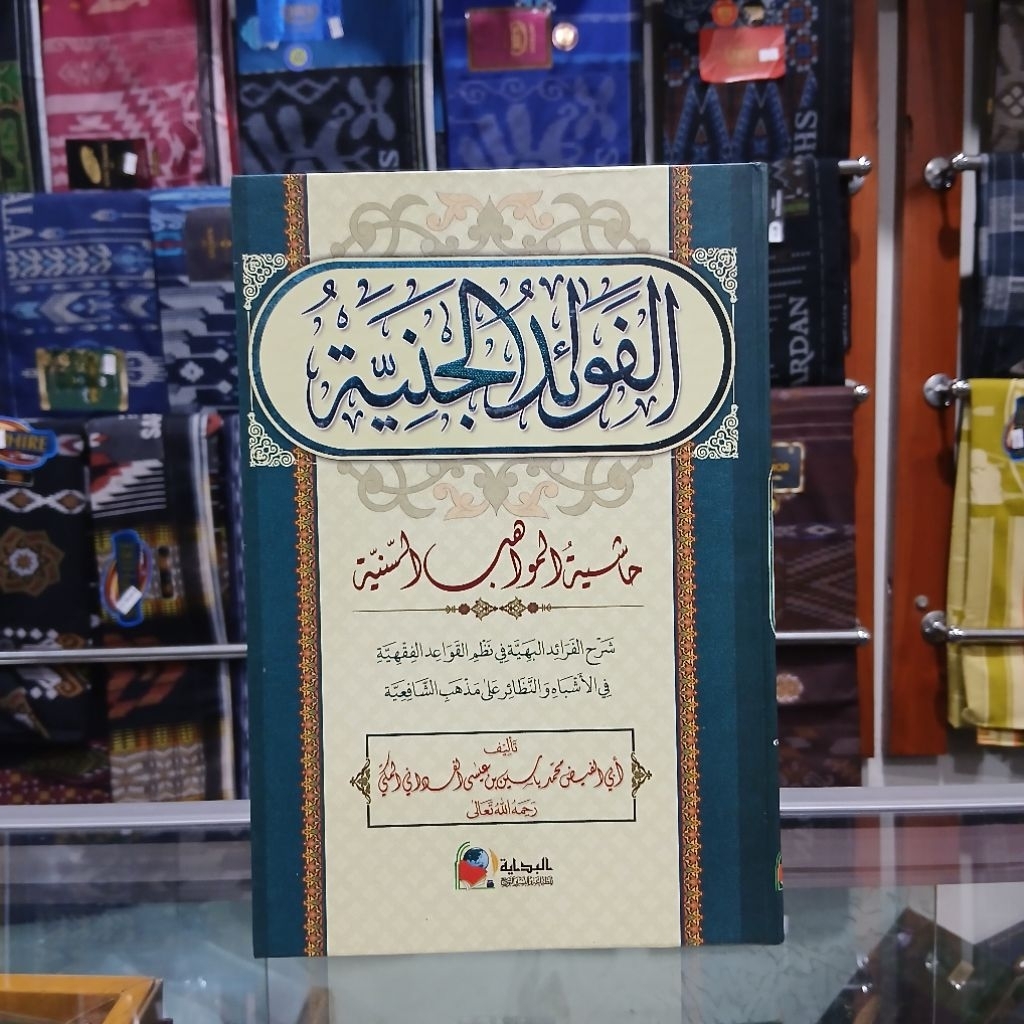 الفَوَائِدُ الجَنِيَّةُ
حاشيةُ المواهب السَّنيّة
شَرْحِ الفَرَائِدِ البَهِيَّةِ فِي نَظْمِ القَوَاعِدِ الفِقْهِيَّةِ
فِي الأَشْبَاهِ وَالنَّظَائِرِ عَلَى مَذْهَبِ الشَّافِعِيَّةِ
تَأْلِيف
أبي الفيض محمد ياسين بن عيسى الفاداني المكي
رَحِمَهُ اللهُ تَعَالَى
البداية
ARDAN